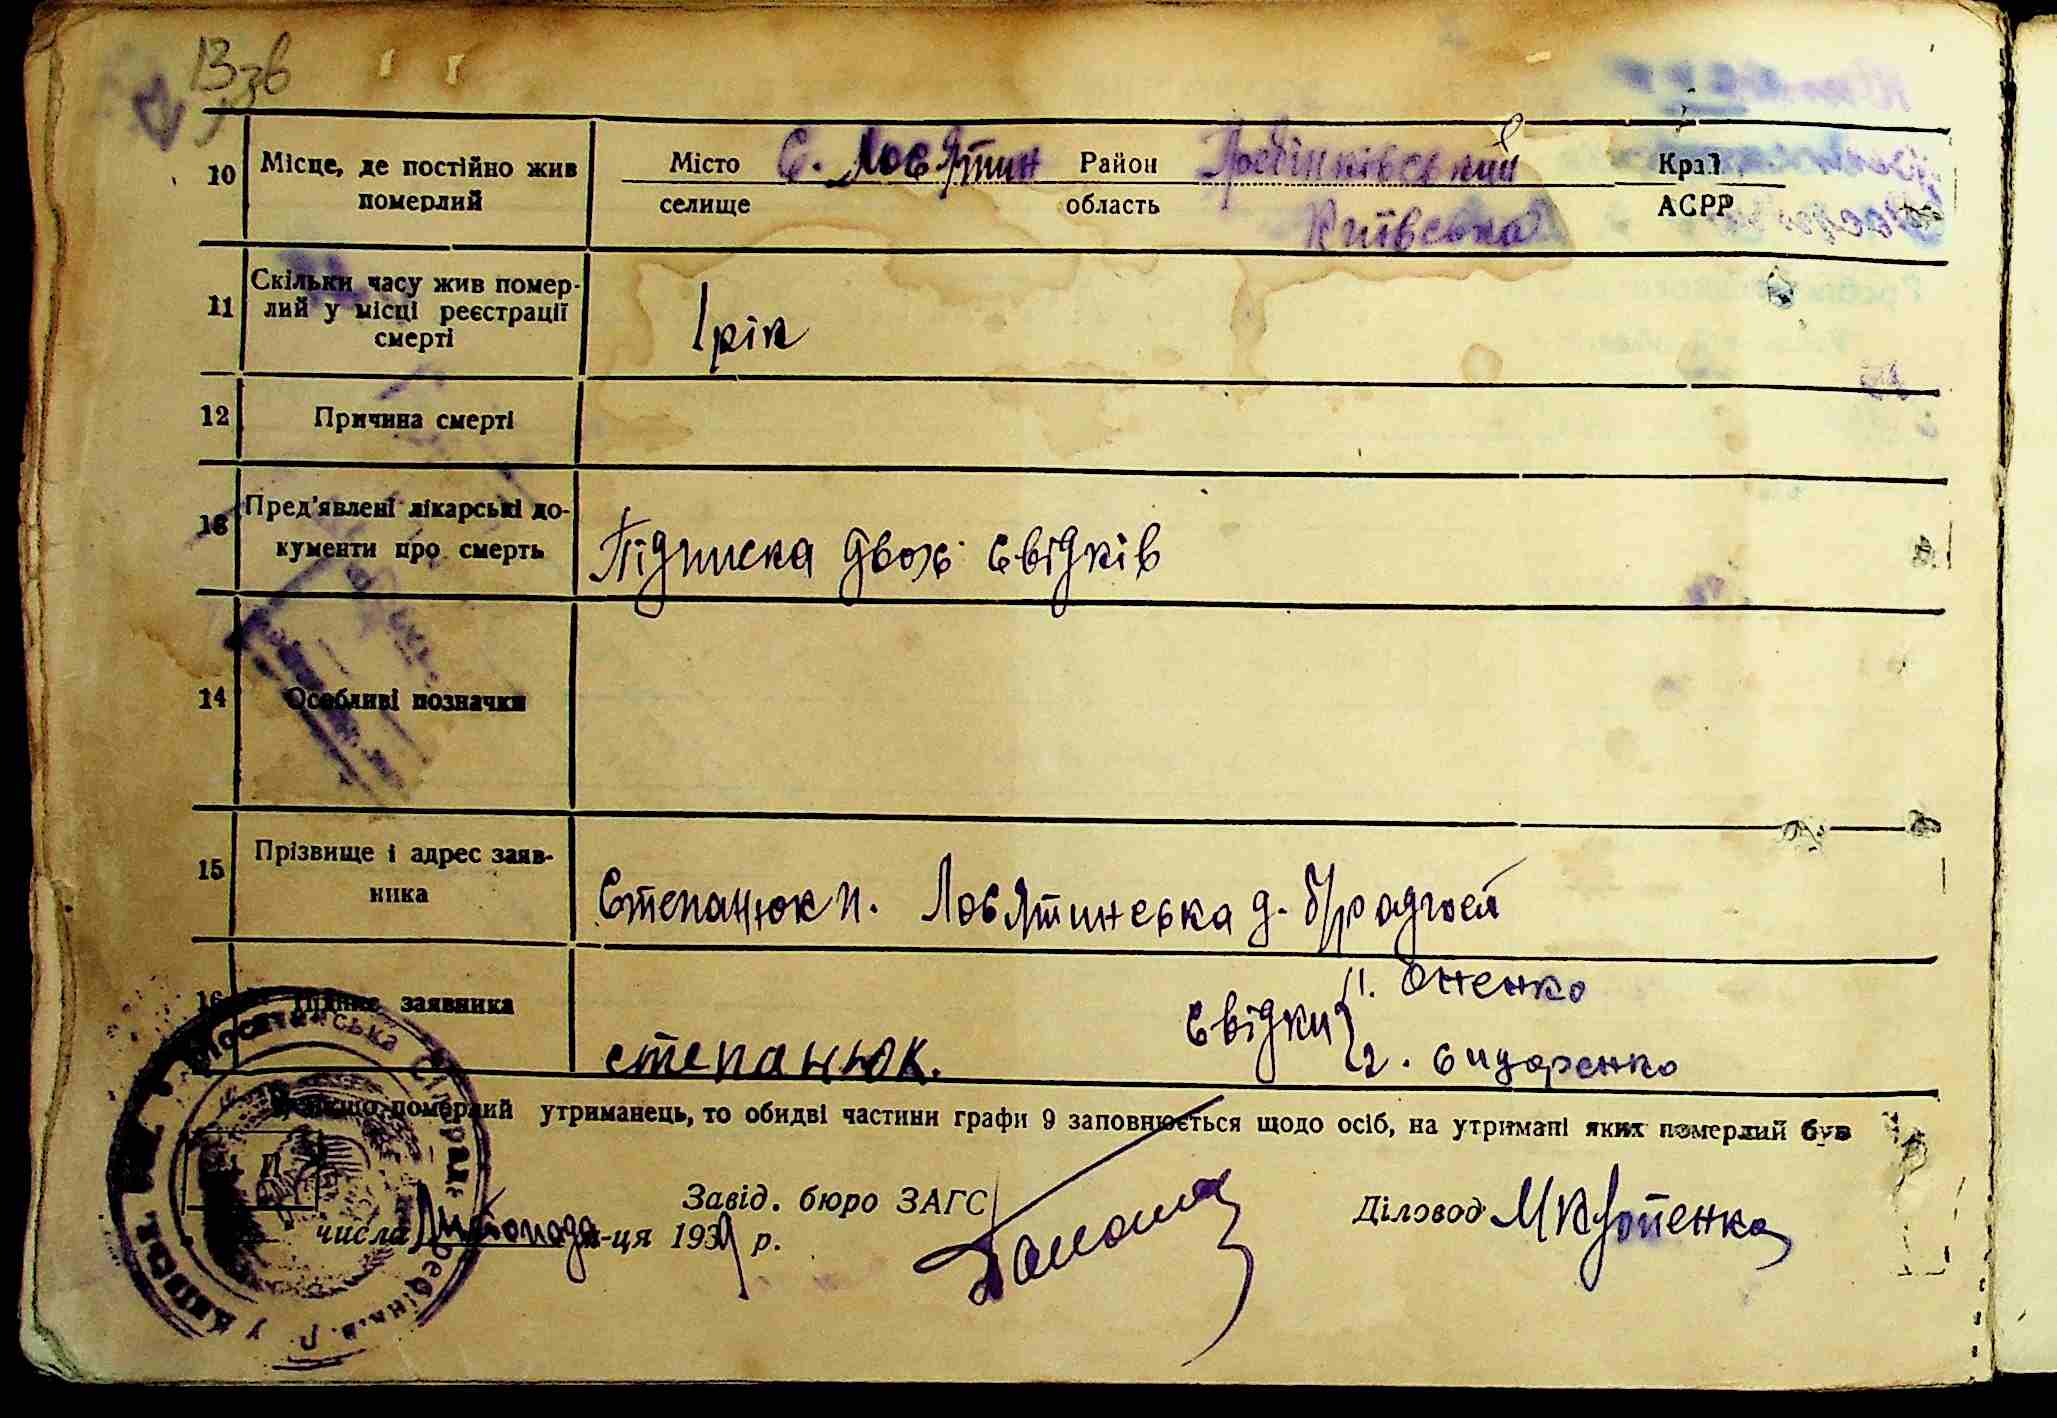 13 зв
10 Місце, де постійно жив померлий
Місто селище с. Лосятин Район область Гребінківський Київська Край АСРР
11 Скільки часу жив помер-
лий у місці реєстрації
смерті
1 рік
12 Причина смерті
13 Пред'явлені лікарські до-
кументи про смерть
Підписка двох свідків
14 Особливі позначки
15 Прізвище і адрес заяв-
ника
Степанюк п. Лосятинська д.
16 Підпис заявника
степанюк.
Свідки 1. Оненко
2. Сидоренко
якщо померлий утриманець, то обидві частини графи 9 заповнюється щодо осіб, на утримані яких померлий був
Завід. бюро ЗАГС
Діловод
числа Листопада м-ця 1934 р.
Лосятинська Сільрада Гребінк. Р.